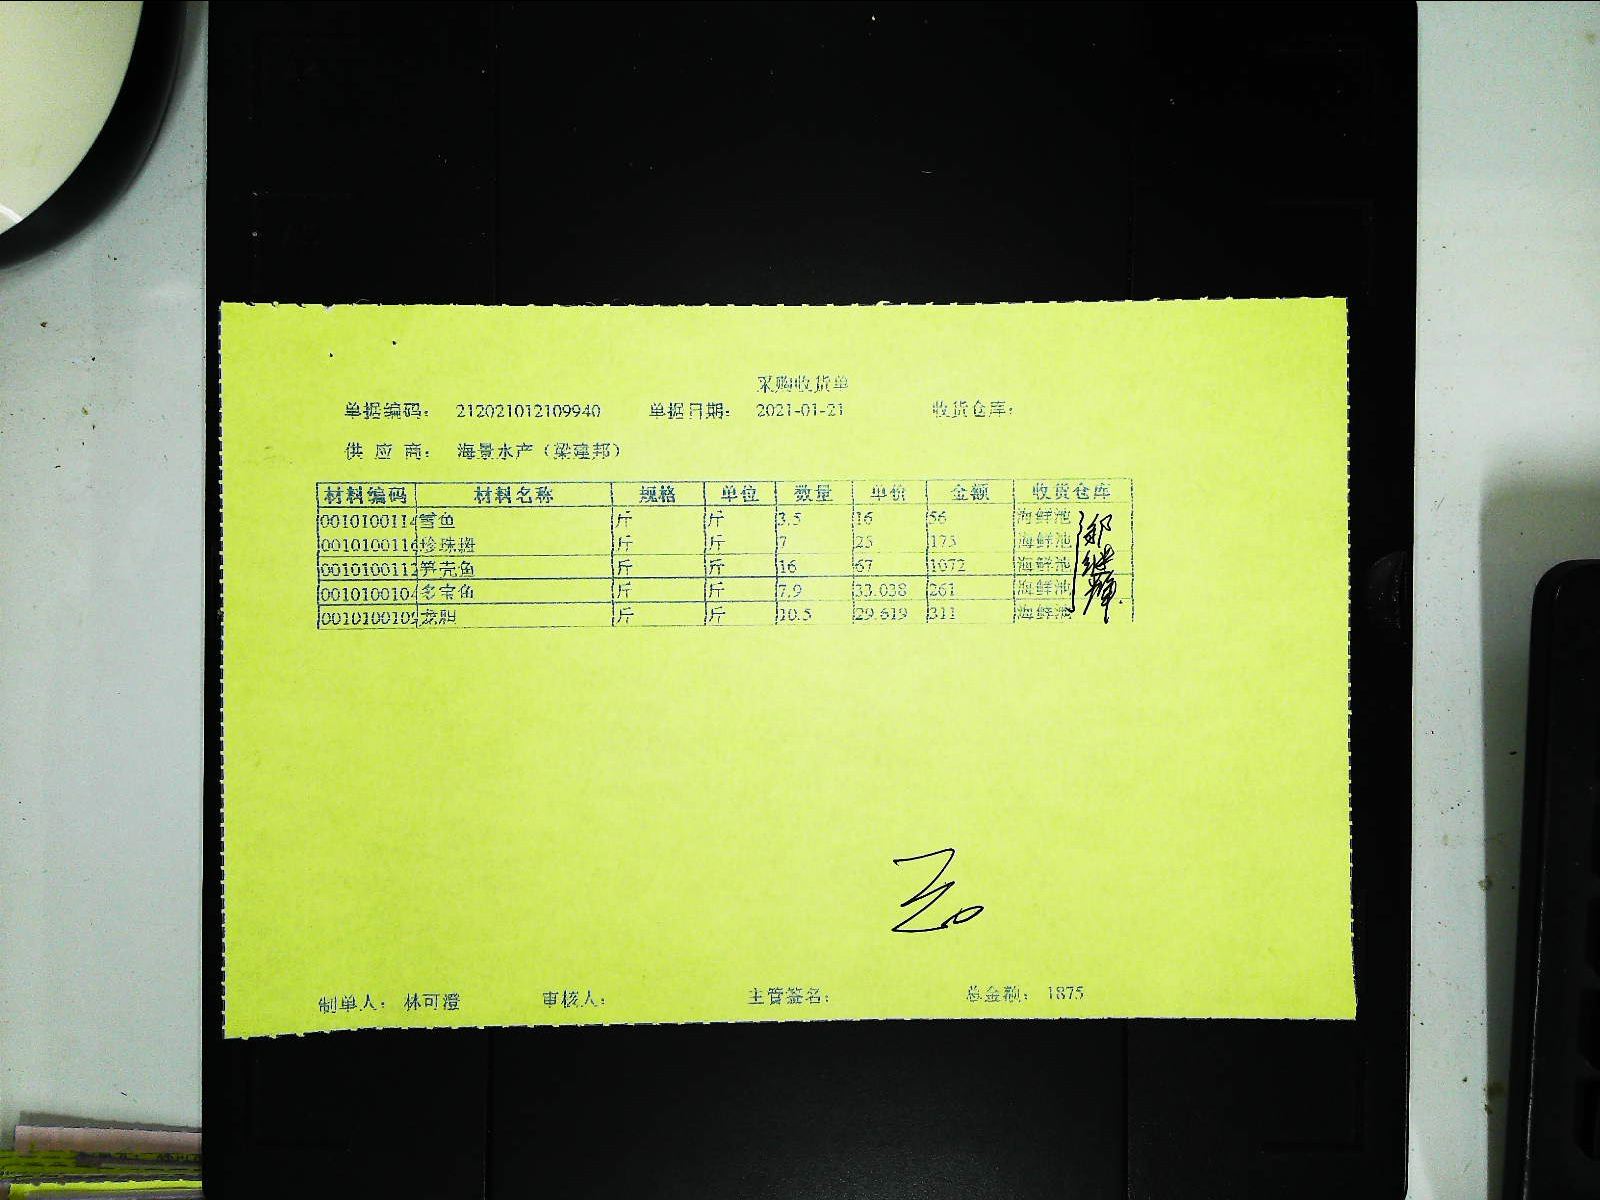 采购收货单
单据编码： 212021012109940 单据日期： 2021-01-21 收货仓库：
供 应 商： 海景水产（梁建邦）
材料编码 材料名称 规格 单位 数量 单价 金额 收货仓库
0010100114 鳕鱼 斤 斤 3.5 16 56 海鲜池
0010100116 珍珠斑 斤 斤 7 25 175 海鲜池
0010100112 笋壳鱼 斤 斤 16 67 1072 海鲜池
0010100104 多宝鱼 斤 斤 7.9 33.038 261 海鲜池
001010010 龙胆 斤 斤 10.5 29.619 311 海鲜池
制单人： 林可澄 审核人： 主管签名： 总金额： 1875